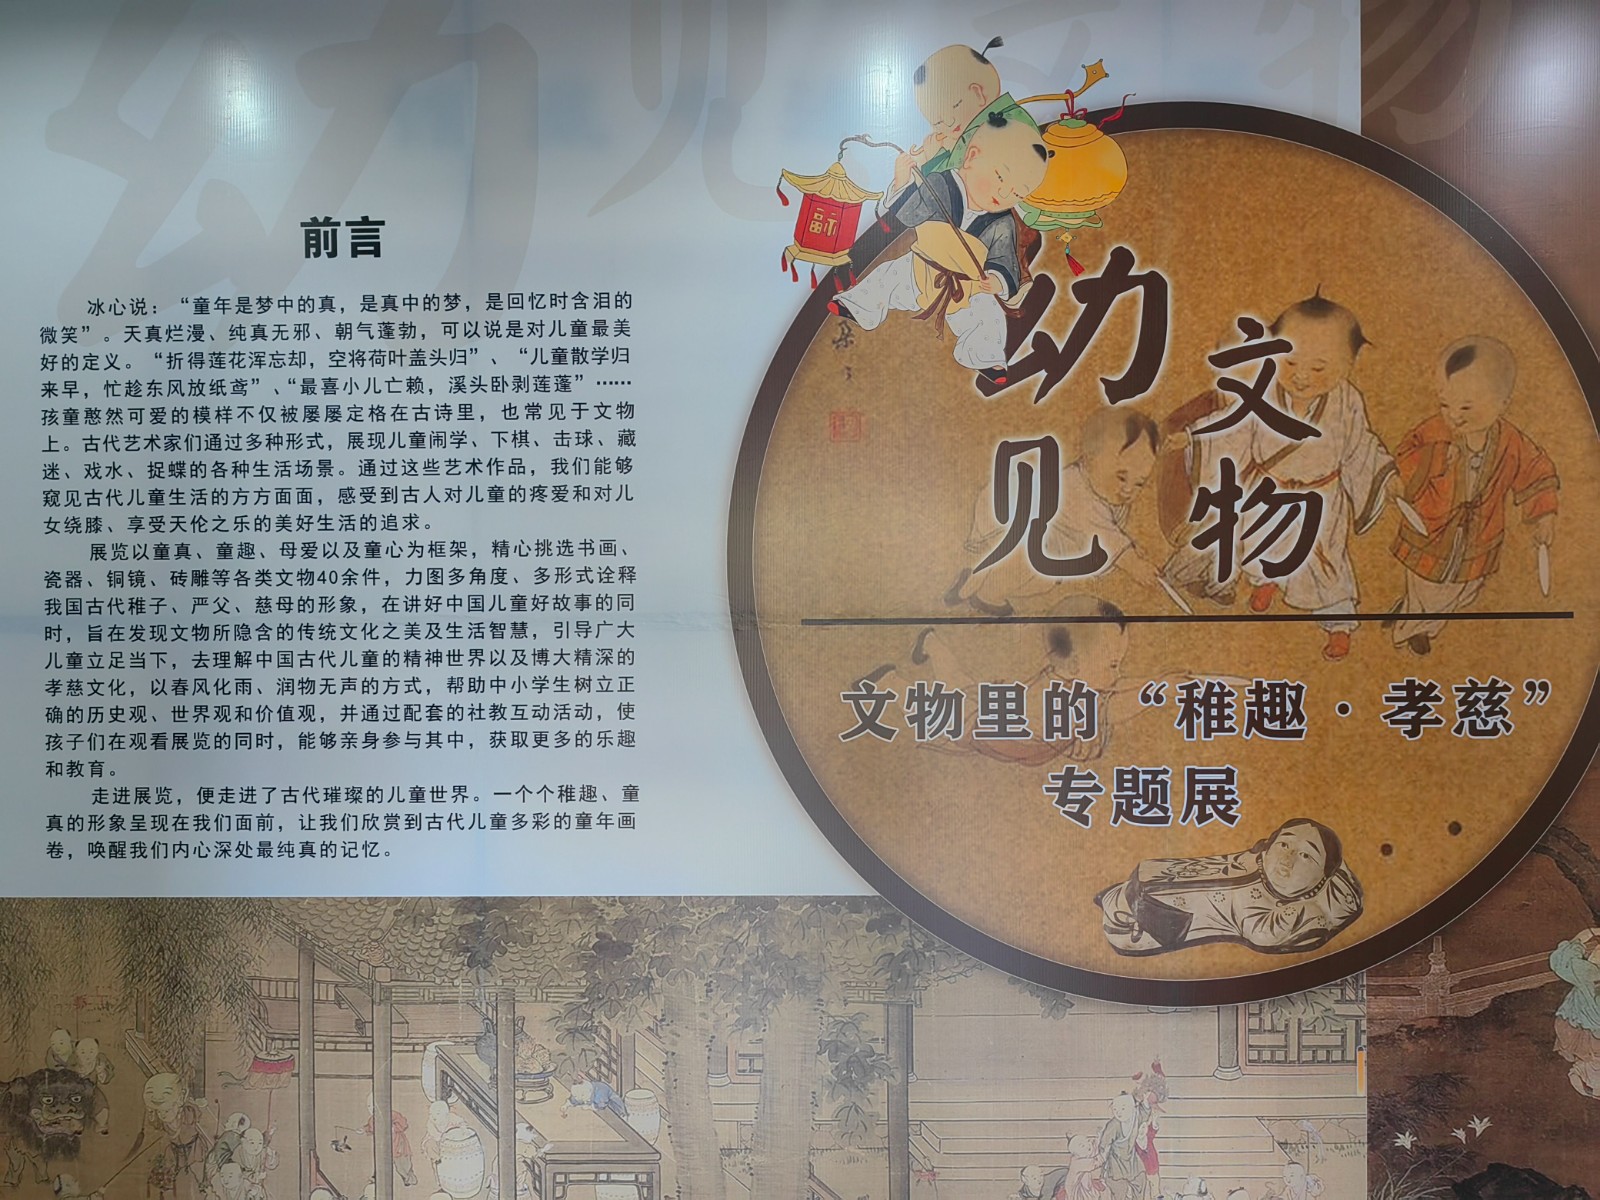 前言
冰心说：“童年是梦中的真，是真中的梦，是回忆时含泪的
微笑”。天真烂漫、纯真无邪、朝气蓬勃，可以说是对儿童最美
好的定义。“折得莲花浑忘却，空将荷叶盖头归”、“儿童散学归
来早，忙趁东风放纸鸢”、“最喜小儿亡赖，溪头卧剥莲蓬”……
孩童憨然可爱的模样不仅被屡屡定格在古诗里，也常见于文物
上。古代艺术家们通过多种形式，展现儿童闹学、下棋、击球、藏
迷、戏水、捉蝶的各种生活场景。通过这些艺术作品，我们能够
窥见古代儿童生活的方方面面，感受到古人对儿童的疼爱和对儿
女绕膝、享受天伦之乐的美好生活的追求。
展览以童真、童趣、母爱以及童心为框架，精心挑选书画、
瓷器、铜镜、砖雕等各类文物40余件，力图多角度、多形式诠释
我国古代稚子、严父、慈母的形象，在讲好中国儿童好故事的同
时，旨在发现文物所隐含的传统文化之美及生活智慧，引导广大
儿童立足当下，去理解中国古代儿童的精神世界以及博大精深的
孝慈文化，以春风化雨、润物无声的方式，帮助中小学生树立正
确的历史观、世界观和价值观，并通过配套的社教互动活动，使
孩子们在观看展览的同时，能够亲身参与其中，获取更多的乐趣
和教育。
走进展览，便走进了古代璀璨的儿童世界。一个个稚趣、童
真的形象呈现在我们面前，让我们欣赏到古代儿童多彩的童年画
卷，唤醒我们内心深处最纯真的记忆。
幼见文物
福
幼见
文物
文物里的“稚趣·孝慈”
专题展